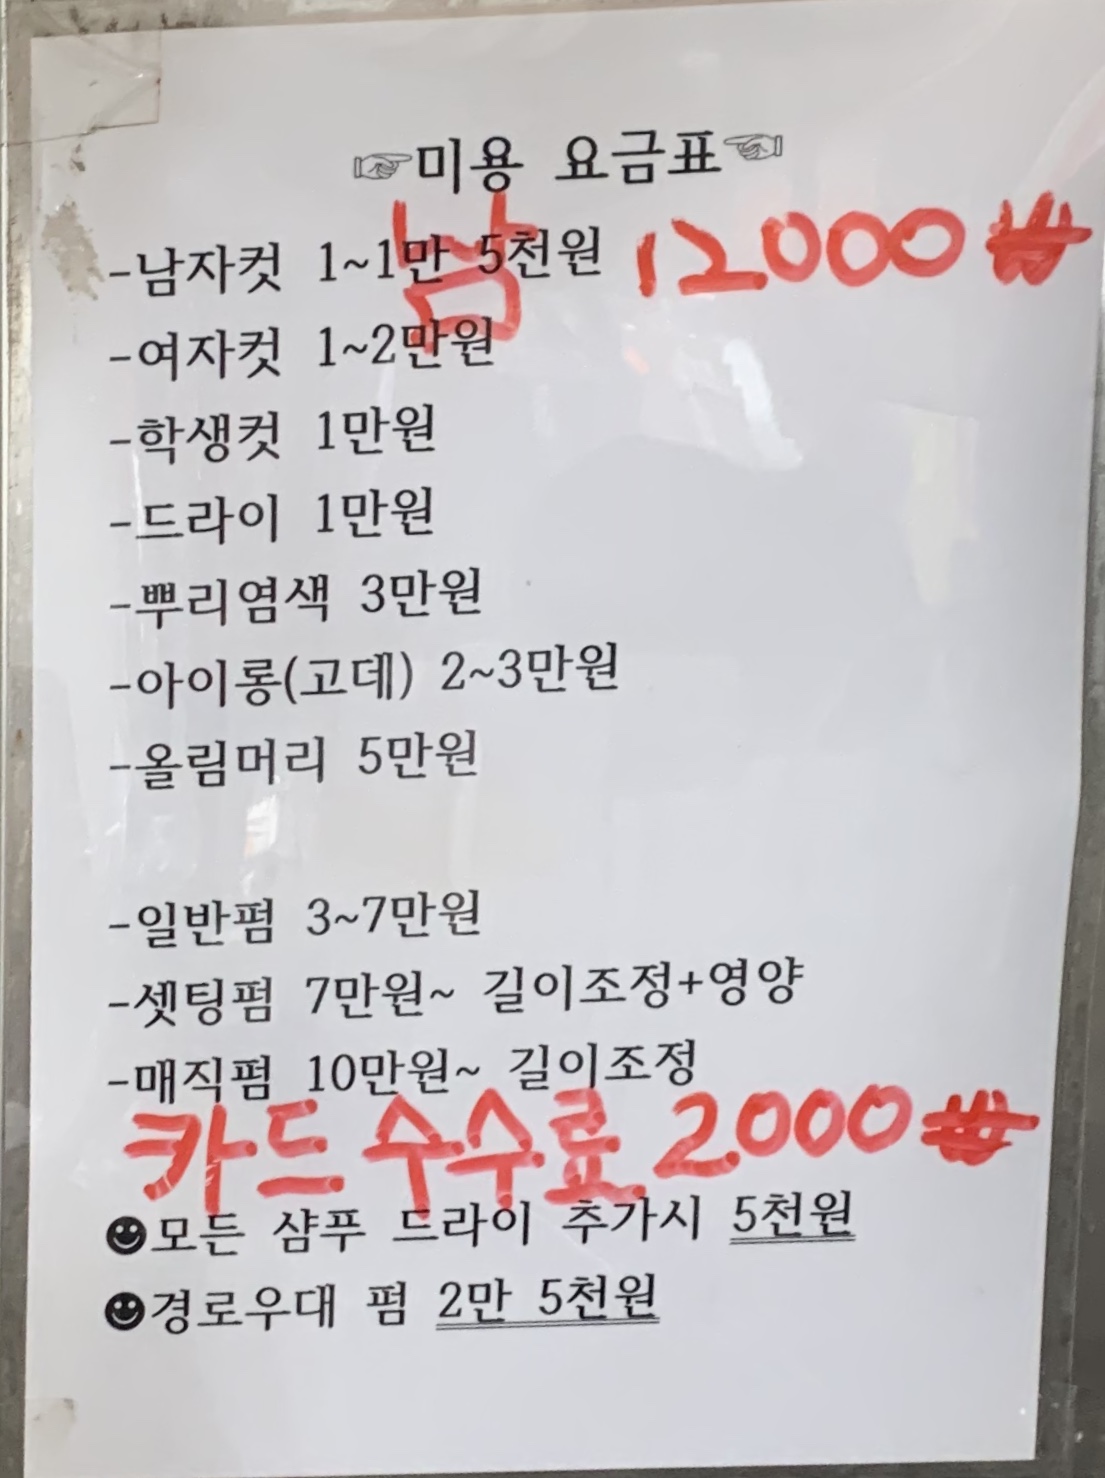 ☞미용 요금표☜
-남자컷 1~1만 5천원
남 12000₩
-여자컷 1~2만원
-학생컷 1만원
-드라이 1만원
-뿌리염색 3만원
-아이롱(고데) 2~3만원
-올림머리 5만원
-일반펌 3~7만원
-셋팅펌 7만원~ 길이조정+영양
-매직펌 10만원~ 길이조정
카드 수수료 2.000₩
☻모든 샴푸 드라이 추가시 5천원
☻경로우대 펌 2만 5천원